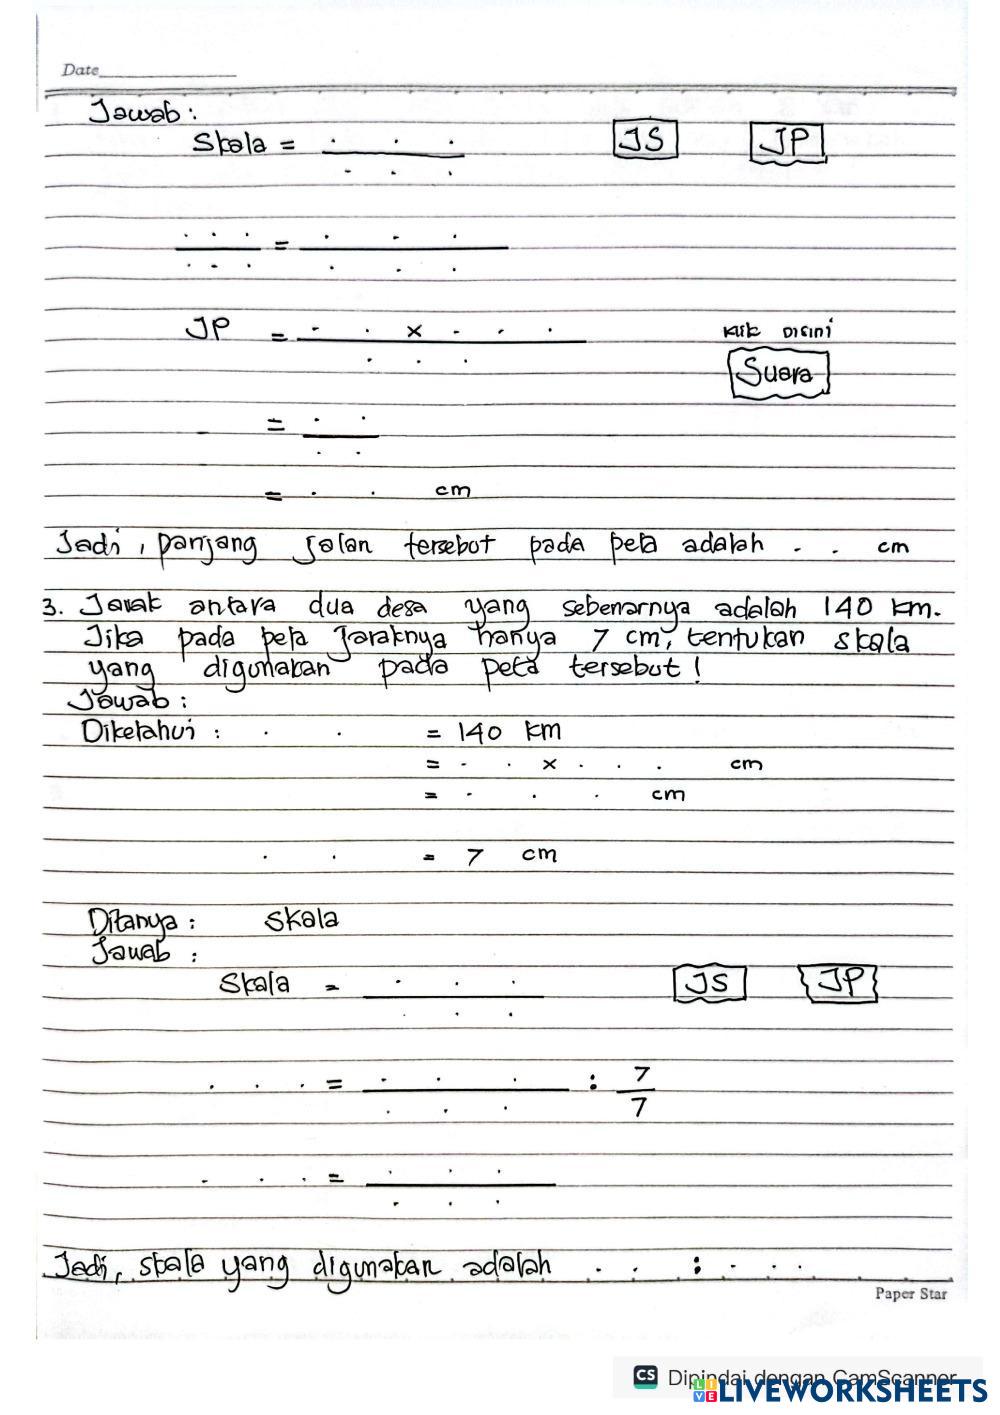 Date
Jawab :
Skala = . . . / . . . JS JP
. . . / . . . = . . . / . . .
JP = . . x . . . / . . . Klik Disini
Suara
= . . / . .
= . . cm
Jadi, panjang jalan tersebut pada peta adalah . . cm
3. Jarak antara dua desa yang sebenarnya adalah 140 km.
Jika pada peta jaraknya hanya 7 cm, tentukan skala
yang digunakan pada peta tersebut !
Jawab :
Diketahui : . . = 140 km
= . . x . . . cm
= . . . cm
. . = 7 cm
Ditanya : Skala
Jawab :
Skala = . . . / . . . JS JP
. . . = . . . / . . . : 7/7
. . . = . . . / . . .
Jadi, skala yang digunakan adalah . . : . . . .
Paper Star
CS Dipindai dengan CamScanner
LIVEWORKSHEETS